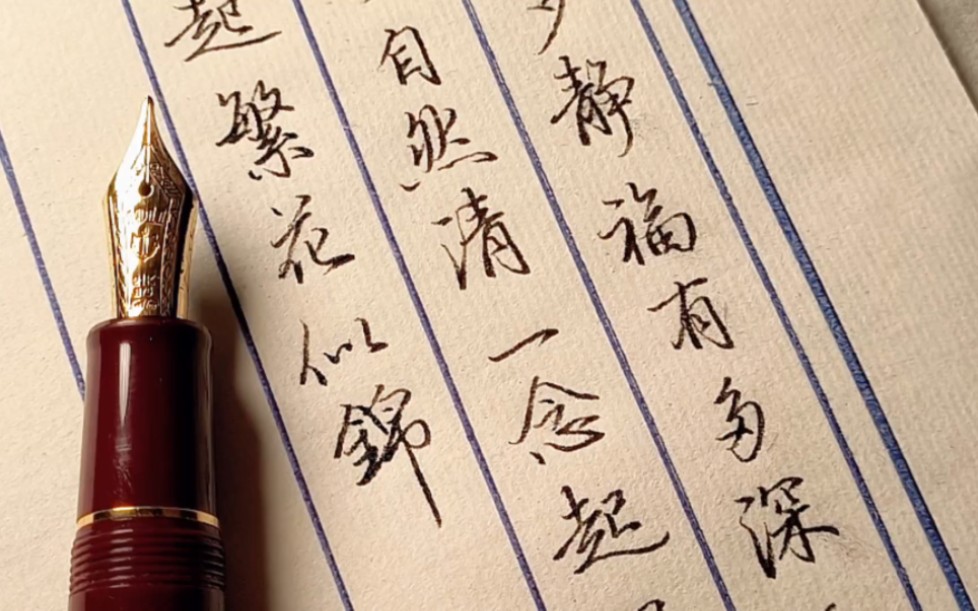 静福有多深
自然清一念起
起繁花似錦